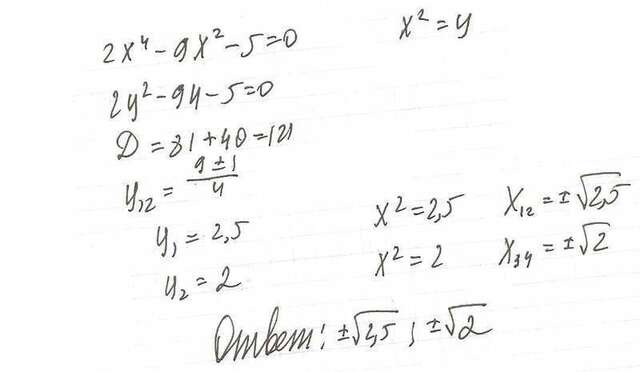 2x⁴ - 9x² - 5 = 0    x² = y
2y² - 9y - 5 = 0
D = 81 + 40 = 121
y₁₂ = (9 ± 1)/4
y₁ = 2,5    x² = 2,5    x₁₂ = ±√2,5
y₂ = 2    x² = 2    x₃₄ = ±√2
Ответ: ±√2,5 ; ±√2